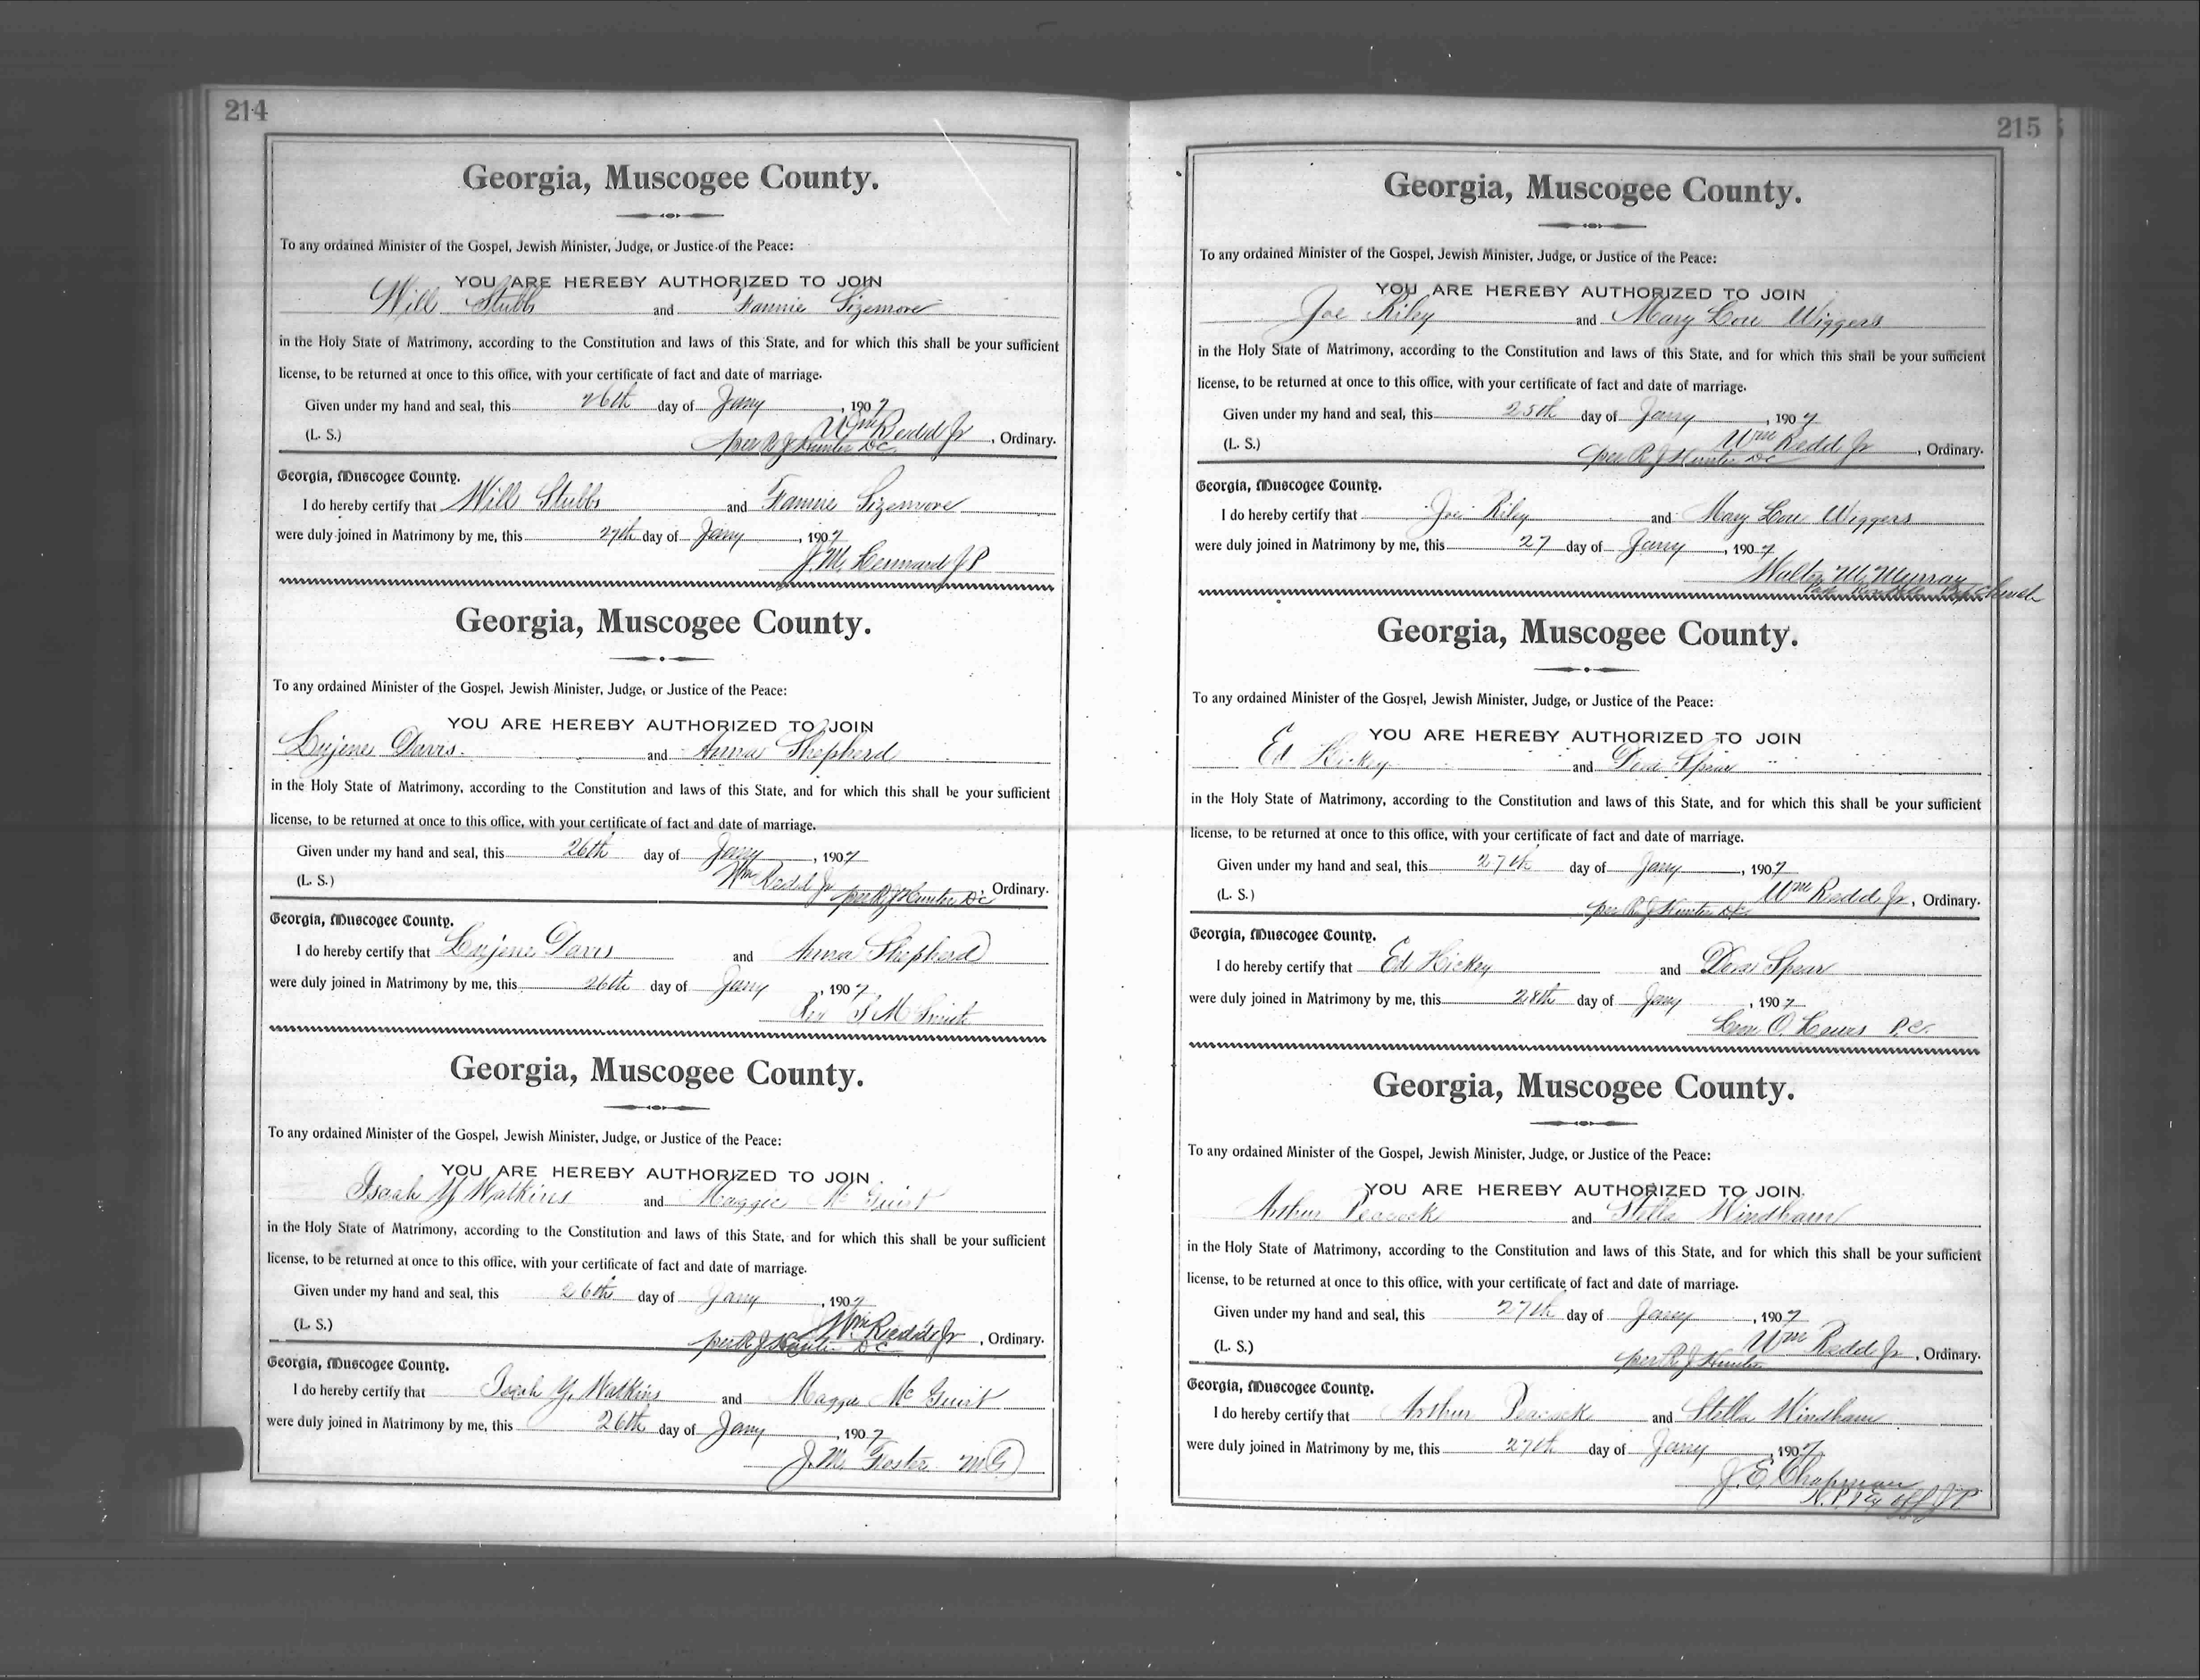 214
Georgia, Muscogee County.
To any ordained Minister of the Gospel, Jewish Minister, Judge, or Justice of the Peace:
YOU ARE HEREBY AUTHORIZED TO JOIN
Will Stubbs and Fannie Sizemore
in the Holy State of Matrimony, according to the Constitution and laws of this State, and for which this shall be your sufficient
license, to be returned at once to this office, with your certificate of fact and date of marriage.
Given under my hand and seal, this 26th day of Jany, 1907
Wm Redd Jr
(L. S.) per R J Hunter DC, Ordinary.
Georgia, Muscogee County.
I do hereby certify that Will Stubbs and Fannie Sizemore
were duly joined in Matrimony by me, this 27th day of Jany, 1907
J. M. JP
Georgia, Muscogee County.
To any ordained Minister of the Gospel, Jewish Minister, Judge, or Justice of the Peace:
YOU ARE HEREBY AUTHORIZED TO JOIN
Eujene Davis and Anna Shepherd
in the Holy State of Matrimony, according to the Constitution and laws of this State, and for which this shall be your sufficient
license, to be returned at once to this office, with your certificate of fact and date of marriage.
Given under my hand and seal, this 26th day of Jany, 1907
(L. S.) Wm Redd Jr per R J Hunter DC, Ordinary.
Georgia, Muscogee County.
I do hereby certify that Eujene Davis and Anna Shepherd
were duly joined in Matrimony by me, this 26th day of Jany, 1907
Rev S M Smith
Georgia, Muscogee County.
To any ordained Minister of the Gospel, Jewish Minister, Judge, or Justice of the Peace:
YOU ARE HEREBY AUTHORIZED TO JOIN
Isaah Y Watkins and Maggie Mc Guirt
in the Holy State of Matrimony, according to the Constitution and laws of this State, and for which this shall be your sufficient
license, to be returned at once to this office, with your certificate of fact and date of marriage.
Given under my hand and seal, this 26th day of Jany, 1907
Wm Redd Jr
(L. S.) per R J Hunter DC, Ordinary.
Georgia, Muscogee County.
I do hereby certify that Isaah Y. Watkins and Maggie Mc Guirt
were duly joined in Matrimony by me, this 26th day of Jany, 1907
J. M. Foster M G
215
Georgia, Muscogee County.
To any ordained Minister of the Gospel, Jewish Minister, Judge, or Justice of the Peace:
YOU ARE HEREBY AUTHORIZED TO JOIN
Joe Riley and Mary Lou Wiggers
in the Holy State of Matrimony, according to the Constitution and laws of this State, and for which this shall be your sufficient
license, to be returned at once to this office, with your certificate of fact and date of marriage.
Given under my hand and seal, this 25th day of Jany, 1907
Wm Redd Jr
(L. S.) per R J Hunter DC, Ordinary.
Georgia, Muscogee County.
I do hereby certify that Joe Riley and Mary Lou Wiggers
were duly joined in Matrimony by me, this 27 day of Jany, 1907
Walter M. Murray
Bap Church
Georgia, Muscogee County.
To any ordained Minister of the Gospel, Jewish Minister, Judge, or Justice of the Peace:
YOU ARE HEREBY AUTHORIZED TO JOIN
Ed Hickey and Dora Spear
in the Holy State of Matrimony, according to the Constitution and laws of this State, and for which this shall be your sufficient
license, to be returned at once to this office, with your certificate of fact and date of marriage.
Given under my hand and seal, this 27th day of Jany, 1907
Wm Redd Jr
(L. S.) per R J Hunter DC, Ordinary.
Georgia, Muscogee County.
I do hereby certify that Ed Hickey and Dora Spear
were duly joined in Matrimony by me, this 28th day of Jany, 1907
O. Lewis P.C.
Georgia, Muscogee County.
To any ordained Minister of the Gospel, Jewish Minister, Judge, or Justice of the Peace:
YOU ARE HEREBY AUTHORIZED TO JOIN
Arthur Peacock and Stella Windham
in the Holy State of Matrimony, according to the Constitution and laws of this State, and for which this shall be your sufficient
license, to be returned at once to this office, with your certificate of fact and date of marriage.
Given under my hand and seal, this 27th day of Jany, 1907
Wm Redd Jr
(L. S.) per R J Hunter, Ordinary.
Georgia, Muscogee County.
I do hereby certify that Arthur Peacock and Stella Windham
were duly joined in Matrimony by me, this 27th day of Jany, 1907
J. E. Chapman
N. P & Ex off J P